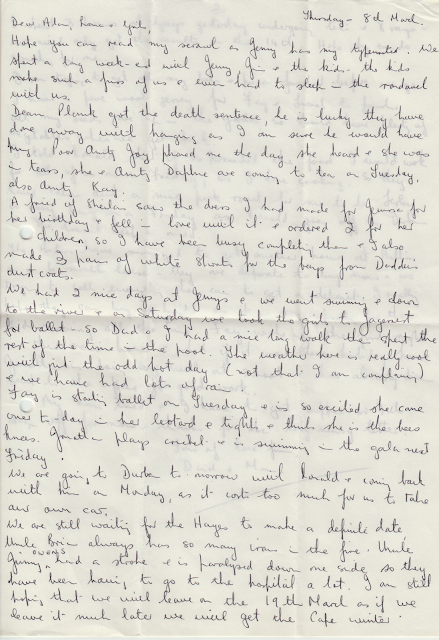 Thursday - 8th March.
Dear Alan, &
Hope you can read my scrawl as Jenny has my typewriter. We
spent a long week-end with Jenny & the kids. the kids
make such a fuss of us & even had to sleep in the rondavel
with us.
Dean Plunk got the death sentence, he is lucky they have
done away with hanging as I am sure he would have
hung. Poor Aunty Joy phoned me the day she heard & she was
in tears, she & Aunty Daphne are coming to tea on Tuesday,
also Aunty Kay.
A friend of saw the dress I had made for for
her birthday & fell in love with it & ordered 2 for her
children, so I have been busy completing them & I also
made 3 pairs of white shorts for the boys from Daddies
dust coats.
We had 2 nice days at Jennys & we went swimming & down
to the river & on Saturday we took the girls to
for ballet - so Dad & I had a nice long walk then spent the
rest of the time in the pool. The weather here is really cool
with just the odd hot day (not that I am complaining)
& we have had lots of rain.
is starting ballet on Tuesday & is so excited she came
over to-day in her leotard & tights & thinks she is the bees
knees. plays cricket & is swimming in the gala next
Friday.
We are going to Durban to morrow with & coming back
with him on Monday, as it costs too much for us to take
our own car.
We are still waiting for the Hayes to make a definite date
Uncle Brian always has so many irons in the fire. Uncle
owens had a stroke & is paralysed down one side so they
have been having to go to the hospital a lot. I am still
hoping that we will leave on the 19th March as if we
leave it much later we will get the Cape winter.